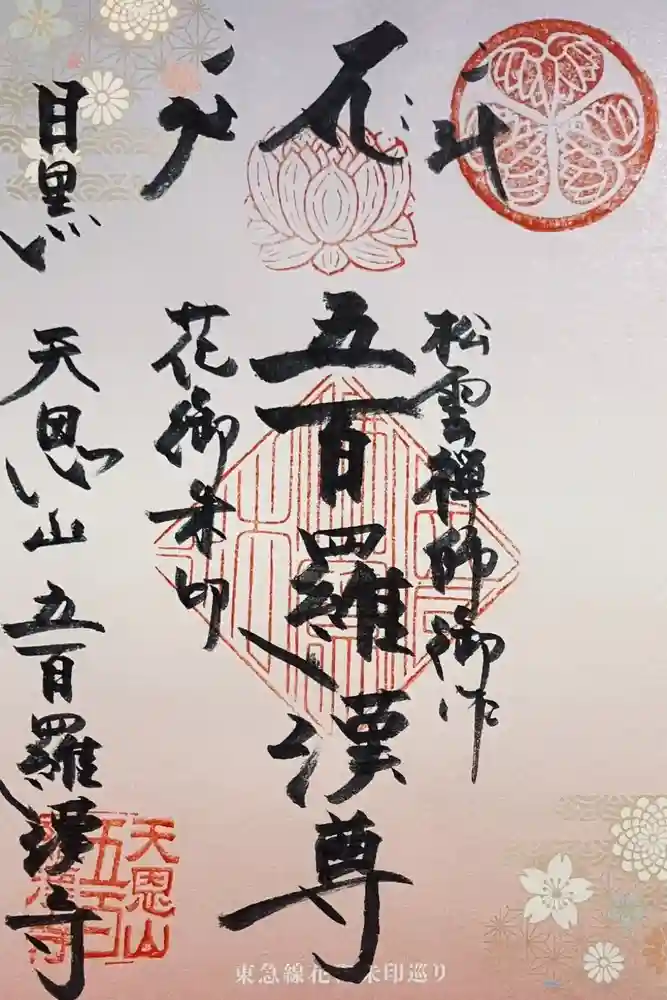 松雲禅師御作
五百羅漢尊
花御朱印
目黒 天恩山 五百羅漢寺
天恩山
五百
羅漢寺
東急線花御朱印巡り